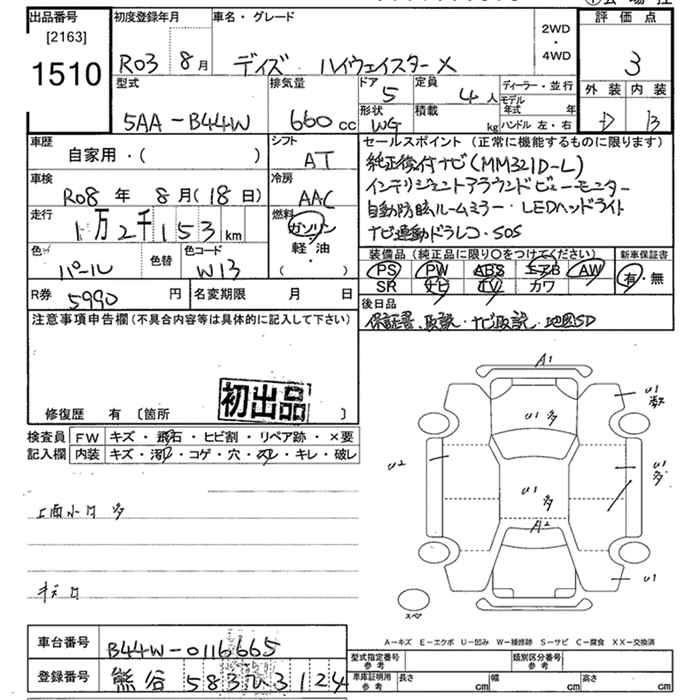 出品番号 初度登録年月 車名・グレード 評価点
[2163]
1510
R03 8月 デイズ ハイウェイスターX 2WD・4WD 3
型式 排気量 ドア 定員 ディーラー・並行 外装 内装
5AA-B44W 660cc 5 4人 モデル年式 年
形状 積載 ハンドル 左・右
WG kg D B
車歴 シフト セールスポイント(正常に機能するものに限ります)
自家用・( ) AT 純正後付ナビ(MM321D-L)
車検 冷房 インテリジェントアラウンドビューモニター
R08年 8月(18日) AAC 自動防眩ルームミラー・LEDヘッドライト
走行 燃料 ナビ連動ドラレコ・SOS
1万2千153km ガソリン・軽油・( )
色 色替 色コード 装備品(純正品に限り○をつけてください) 新車保証書
パール W13 PS PW ABS エアB AW 有・無
SR ナビ TV カワ
R券 5990円 名変期限 月 日 後日品
保証書、取説・ナビ取説・地図SD
注意事項申告欄(不具合内容等は具体的に記入して下さい)
初出品
修復歴 有〔箇所 〕
検査員 FW キズ・飛石・ヒビ割・リペア跡・×要
記入欄 内装 キズ・汚れ・コゲ・穴・スレ・キレ・破レ
A1
U1
U1 多
U2
U1 多
U1 多
A2
U1
スペア
A-キズ E-エクボ U-凹み W-補修跡 S-サビ C-腐食 XX-交換済
車台番号 B44W-0116665
型式指定番号 参考 類別区分番号 参考
登録番号 熊谷 583 ひ 3124
車庫証明用 参考 長さ cm 幅 cm 高さ cm